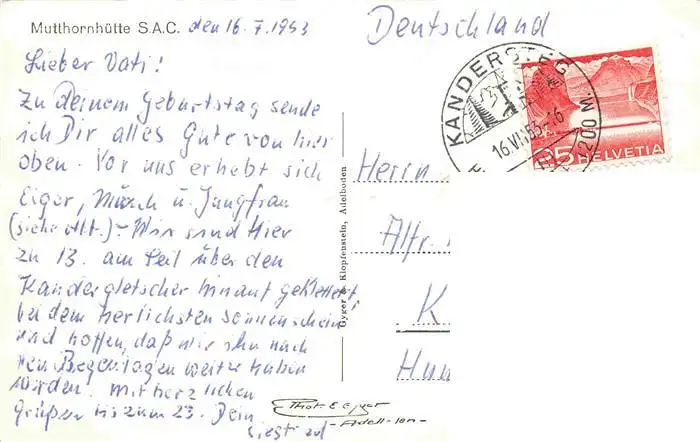 Mutthornhütte S.A.C. den 16.7.1953
Deutschland
Lieber Vati!
Zu Deinem Geburtstag sende
ich Dir alles Gute von hier
oben. Vor uns erhebt sich
Eiger, Mönch u. Jungfrau
(siehe Abb.) - Wir sind hier
zu 13. am Seil über den
Kandergletscher hinauf geklettert
bei dem herrlichsten Sonnenschein
und hoffen, daß wir ihn nach
den Regentagen weiter haben
würden. Mit herzlichen
Grüßen bis zum 23. Dein
KANDERSTEG
16.VII.53-16
1200 M.
25 HELVETIA
Herrn
Alfr.
K
Gyger & Klopfenstein, Adelboden
Phot. E. Gyger
- Adelboden -